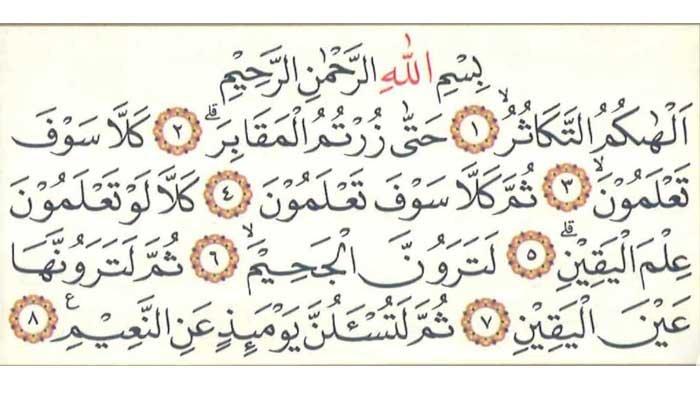 بِسْمِ اللّٰهِ الرَّحْمٰنِ الرَّحِيْمِ
اَلْهٰىكُمُ التَّكَاثُرُۙ ۝١ حَتّٰى زُرْتُمُ الْمَقَابِرَۗ ۝٢ كَلَّا سَوْفَ
تَعْلَمُوْنَۙ ۝٣ ثُمَّ كَلَّا سَوْفَ تَعْلَمُوْنَ ۝٤ كَلَّا لَوْ تَعْلَمُوْنَ
عِلْمَ الْيَقِيْنِۗ ۝٥ لَتَرَوُنَّ الْجَحِيْمَۙ ۝٦ ثُمَّ لَتَرَوُنَّهَا
عَيْنَ الْيَقِيْنِ ۝٧ ثُمَّ لَتُسْـَٔلُنَّ يَوْمَىِٕذٍ عَنِ النَّعِيْمِ ࣖ ۝٨